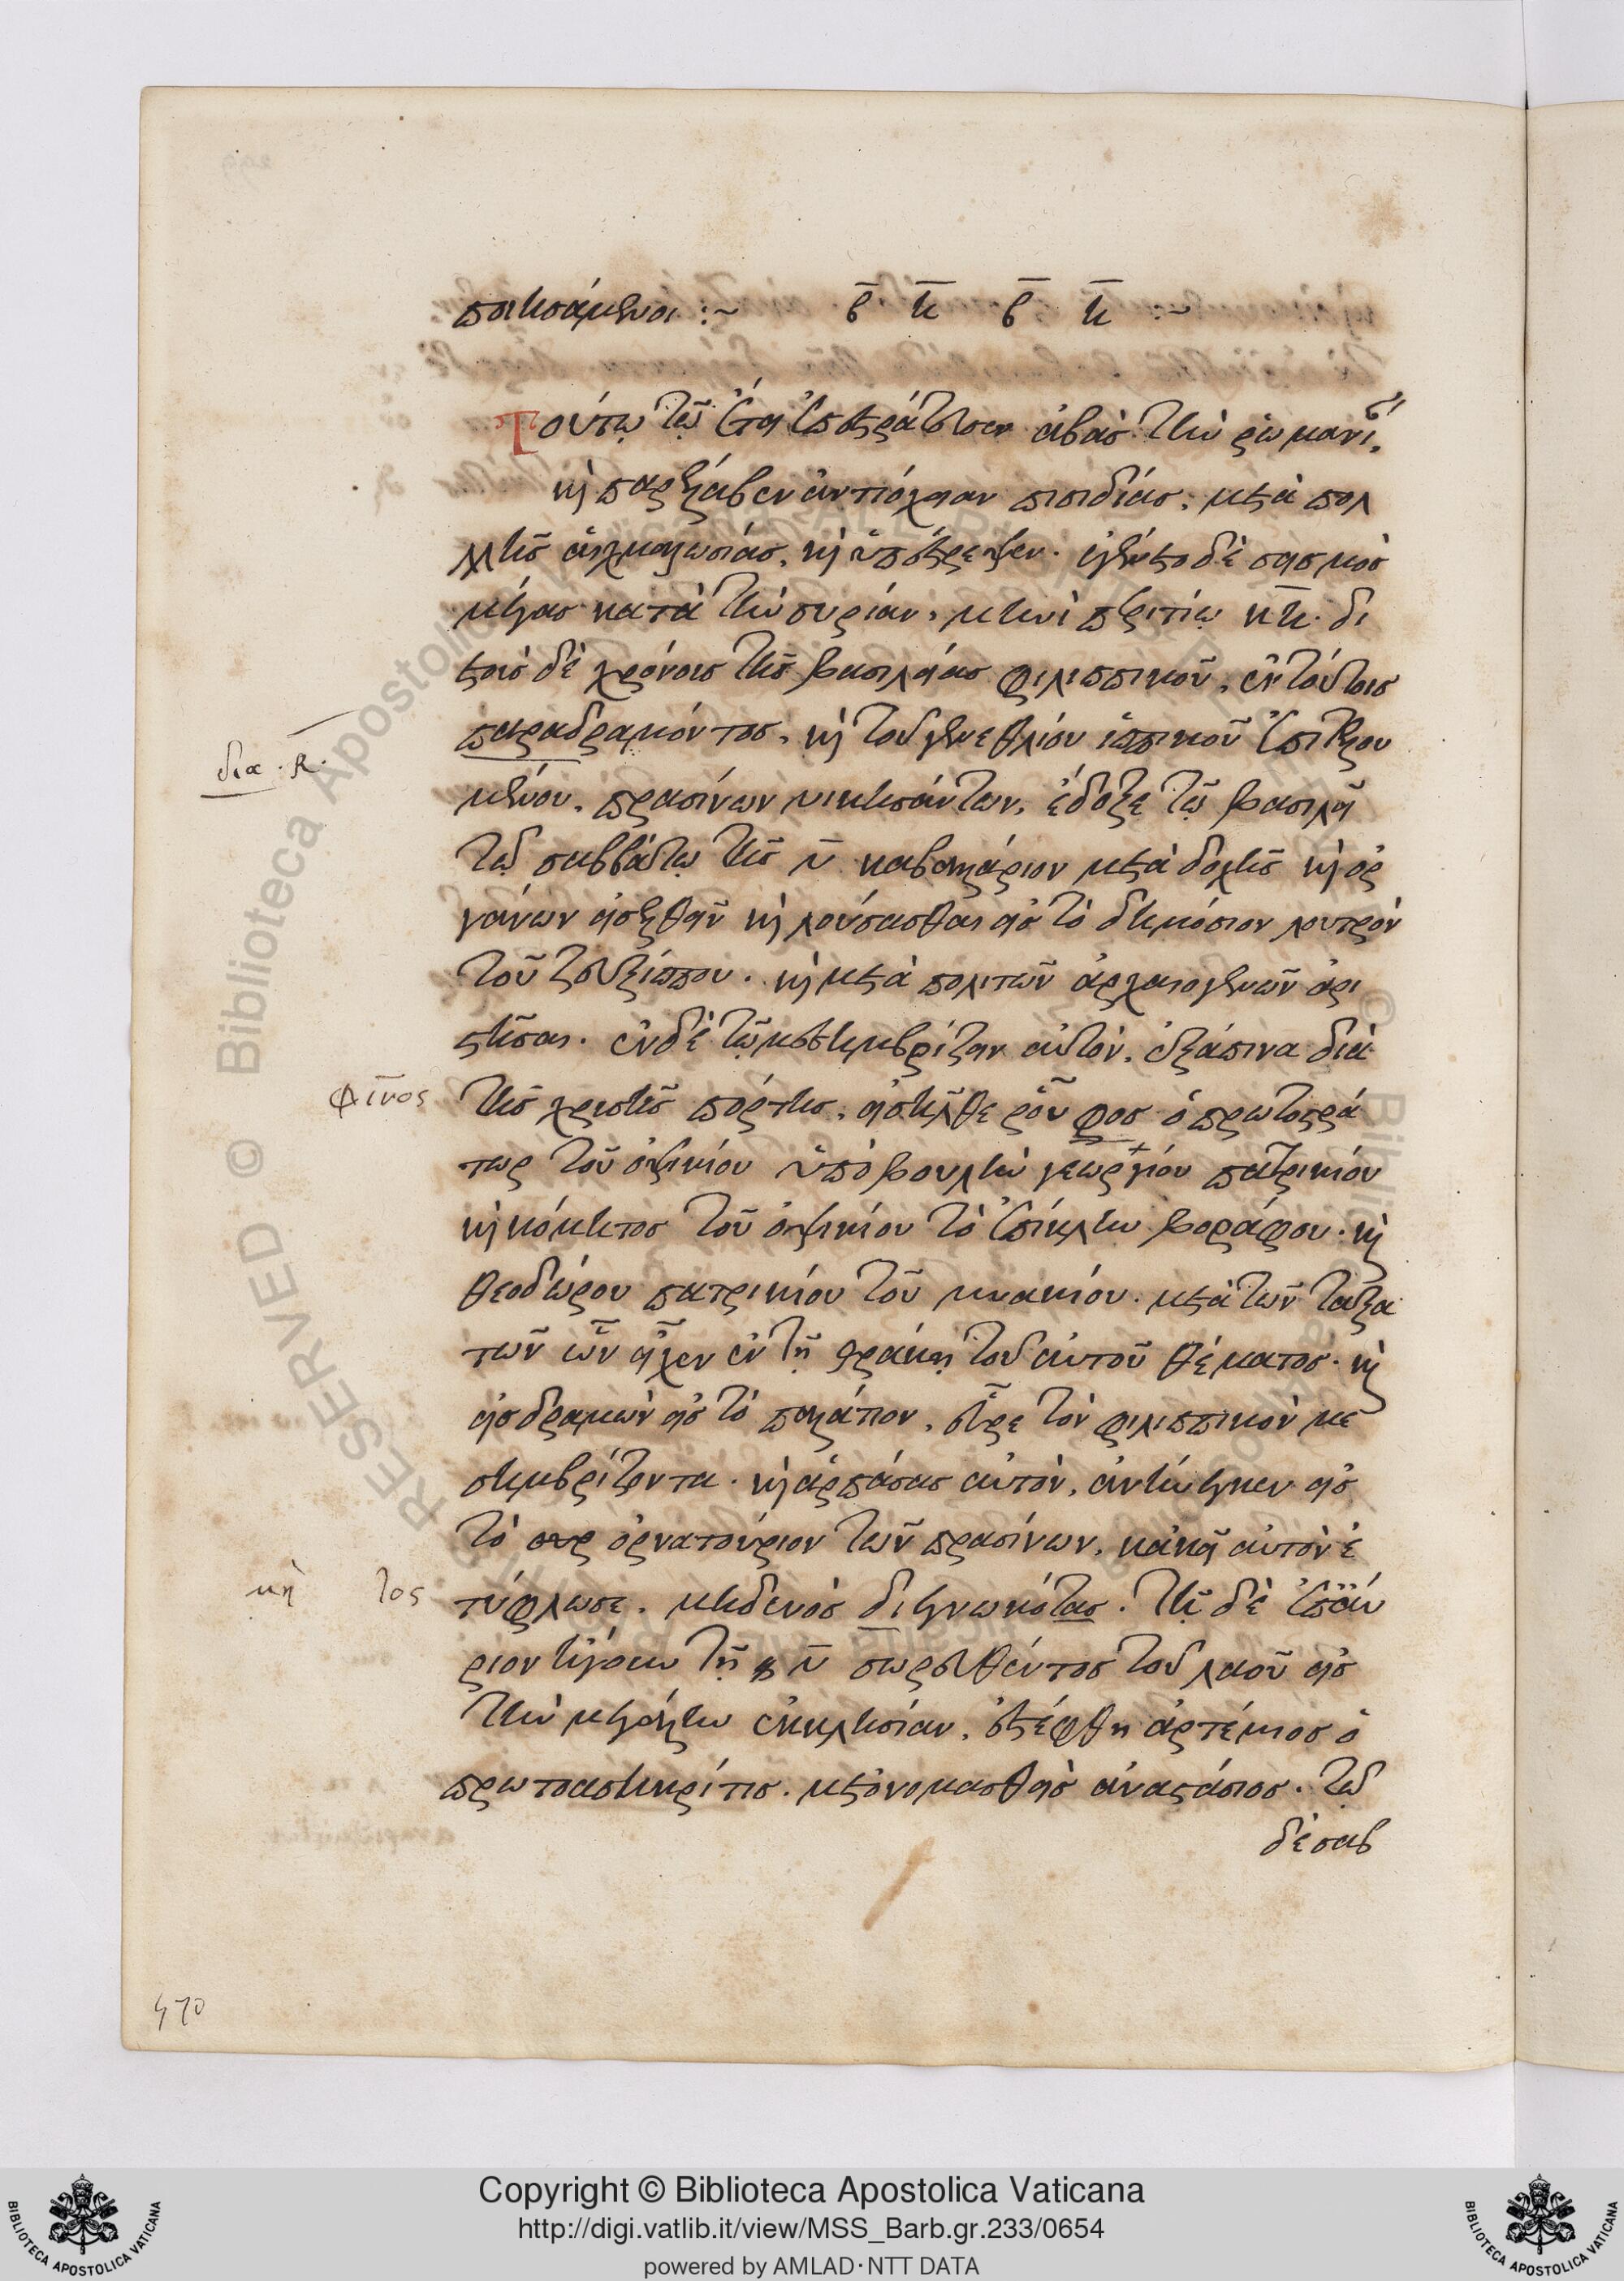 ποιησάμενοι :~ β̅ η̅ β̅ η̅ :~
Τούτῳ τῷ ἔτει ἐπεστράτευσεν ἀβὰς τὴν ῥωμανί,
καὶ παρέλαβεν ἀντιόχειαν πισιδίας, μετὰ πολ
λῆς αἰχμαλωσίας, καὶ ὑπέστρεψεν. ἐγένετο δὲ σεισμὸς
μέγας κατὰ τὴν συρίαν, μηνὶ περιτίῳ κη. δι
ετοὺς δὲ χρόνοις τῆς βασιλείας φιλιππικοῦ, ἐν τούτοις
παραδραμόντος, καὶ τοῦ γενεθλίου ἱππικοῦ ἐπιτελου
δια . κ.
μένου, πρασίνων νικησάντων, ἔδοξε τῷ βασιλεῖ
τῷ σαββάτῳ τῆς ν̅ καβαλάριον μετὰ δοχῆς καὶ ὀρ
γάνων εἰσελθεῖν καὶ λούσασθαι εἰς τὸ δημόσιον λουτρὸν
τοῦ ζευξίππου. καὶ μετὰ πολιτῶν ἀρχαιογενῶν ἀρι
στῆσαι. ἐν δὲ τῷ μεσημβρίζειν αὐτὸν, ἐξάπινα διὰ
φῖνος
τῆς χρυσῆς πόρτης, εἰσῆλθε ῥοῦ φος ὁ πρωτοστρά
τωρ τοῦ ὀψικίου ὑπὸ βουλὴν γεωργίου πατρικίου
καὶ κόμητος τοῦ ὀψικίου τὸ ἐπίκλην βοράφου. καὶ
θεοδώρου πατρικίου τοῦ μυακίου. μετὰ τῶν ταξα
τῶν ὧν εἶχεν ἐν τῇ θράκῃ τοῦ αὐτοῦ θέματος. καὶ
εἰσδραμὼν εἰς τὸ παλάτιον, εὗρε τὸν φιλιππικὸν με
σημβρίζοντα. καὶ ἁρπάσας αὐτὸν, ἀνήνεγκεν εἰς
τὸ ορ ὀρνατούριον τῶν πρασίνων, κἀκεῖ αὐτὸν ἐ
κὴ τος
τύφλωσε. μηδενὸς διεγνωκότας. τῇ δὲ ἐπαύ
ριον ἡγουν τῇ ν̅ σωρευθέντος τοῦ λαοῦ εἰς
τὴν μεγάλην ἐκκλησίαν, ἐστέφθη ἀρτέμιος ὁ
πρωτοασηκρίτις. μετονομασθεὶς ἀναστάσιος. τῷ
δὲ σαβ
470
Copyright © Biblioteca Apostolica Vaticana
http://digi.vatlib.it/view/MSS_Barb.gr.233/0654
powered by AMLAD·NTT DATA